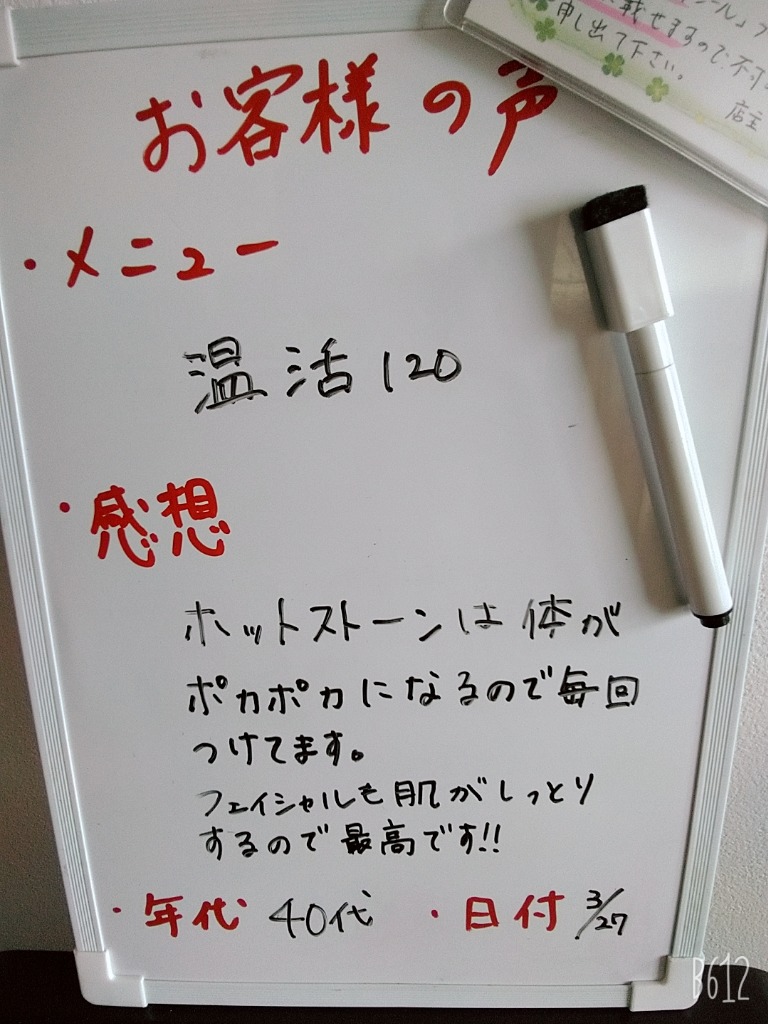 載せますので不可
申し出て下さい。
店主
お客様の声
・メニュー
温活120
・感想
ホットストーンは体が
ポカポカになるので毎回
つけてます。
フェイシャルも肌がしっとり
するので最高です!!
・年代 40代 ・日付 3/27
B612